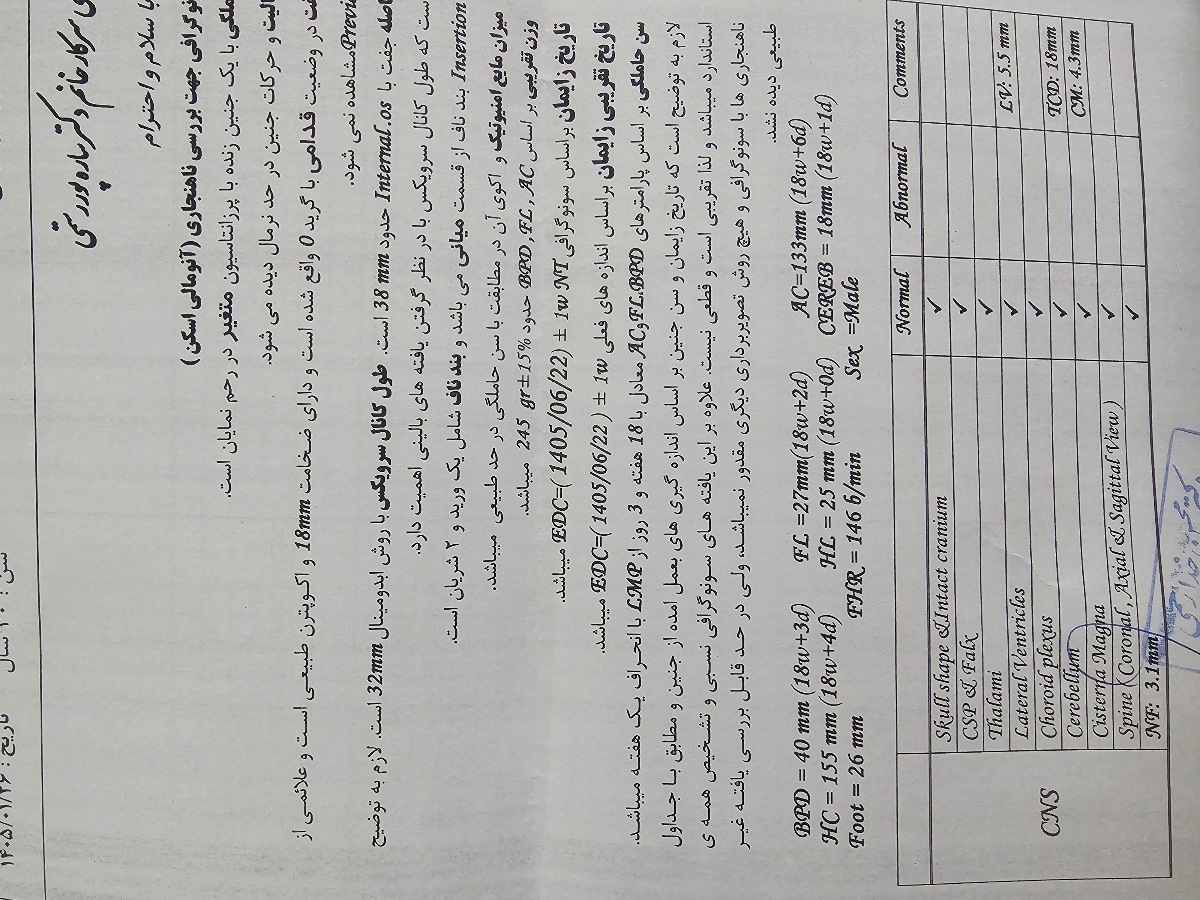 سن : ۳۰ سال تاریخ : ۱۴۰۵/۰۱/۲۶
سرکار خانم دکتر
با سلام و احترام
نوگرافی جهت بررسی ناهنجاری (آنومالی اسکن)
ملگی با یک جنین زنده با پرزانتاسیون متغیر در رحم نمایان است.
الیت و حرکات جنین در حد نرمال دیده می شود.
فت در وضعیت قدامی با گرید 0 واقع شده است و دارای ضخامت 18mm و اکوپترن طبیعی است و علائمی از
Previa مشاهده نمی شود.
اصله جفت با Internal.os حدود 38 mm است. طول کانال سرویکس با روش ابدومینال 32mm است. لازم به توضیح
ست که طول کانال سرویکس با در نظر گرفتن یافته های بالینی اهمیت دارد.
Insertion بند ناف از قسمت میانی می باشد و بند ناف شامل یک ورید و ۲ شریان است.
میزان مایع امنیوتیک و اکوی آن در مطابقت با سن حاملگی در حد طبیعی میباشد.
وزن تقریبی بر اساس BPD, FL, AC حدود 245 gr±15% میباشد.
تاریخ زایمان براساس سونوگرافی EDC=( 1405/06/22) ± 1w NT میباشد.
تاریخ تقریبی زایمان براساس اندازه های فعلی EDC=(1405/06/22 ) ± 1w میباشد.
سن حاملگی بر اساس پارامترهای FL.BPD وAC معادل با 18 هفته و 3 روز از LMP با انحراف یک هفته میباشد.
لازم به توضیح است که تاریخ زایمان و سن جنین بر اساس اندازه گیری های بعمل امده از جنین و مطابق با جداول
استاندارد میباشد و لذا تقریبی است و قطعی نیست. علاوه بر این یافته های سونوگرافی نسبی و تشخیص همه ی
ناهنجاری ها با سونوگرافی و هیچ روش تصویربرداری دیگری مقدور نمیباشد، ولی در حد قابل بررسی یافته غیر
طبیعی دیده نشد.
BPD = 40 mm (18w+3d) FL =27mm(18w+2d) AC=133mm (18w+6d)
HC = 155 mm (18w+4d) HL = 25 mm (18w+0d) CEREB = 18mm (18w+1d)
Foot = 26 mm FHR = 146 b/min Sex =Male
Normal Abnormal Comments
CNS
Skull shape &Intact cranium ✓
CSP & Falx ✓
Thalami ✓
Lateral Ventricles ✓ LV: 5.5 mm
Choroid plexus ✓
Cerebellum ✓ TCD: 18mm
Cisterna Magna ✓ CM: 4.3mm
Spine (Coronal , Axial & Sagittal View ) ✓ ✓
NT: 3.1mm